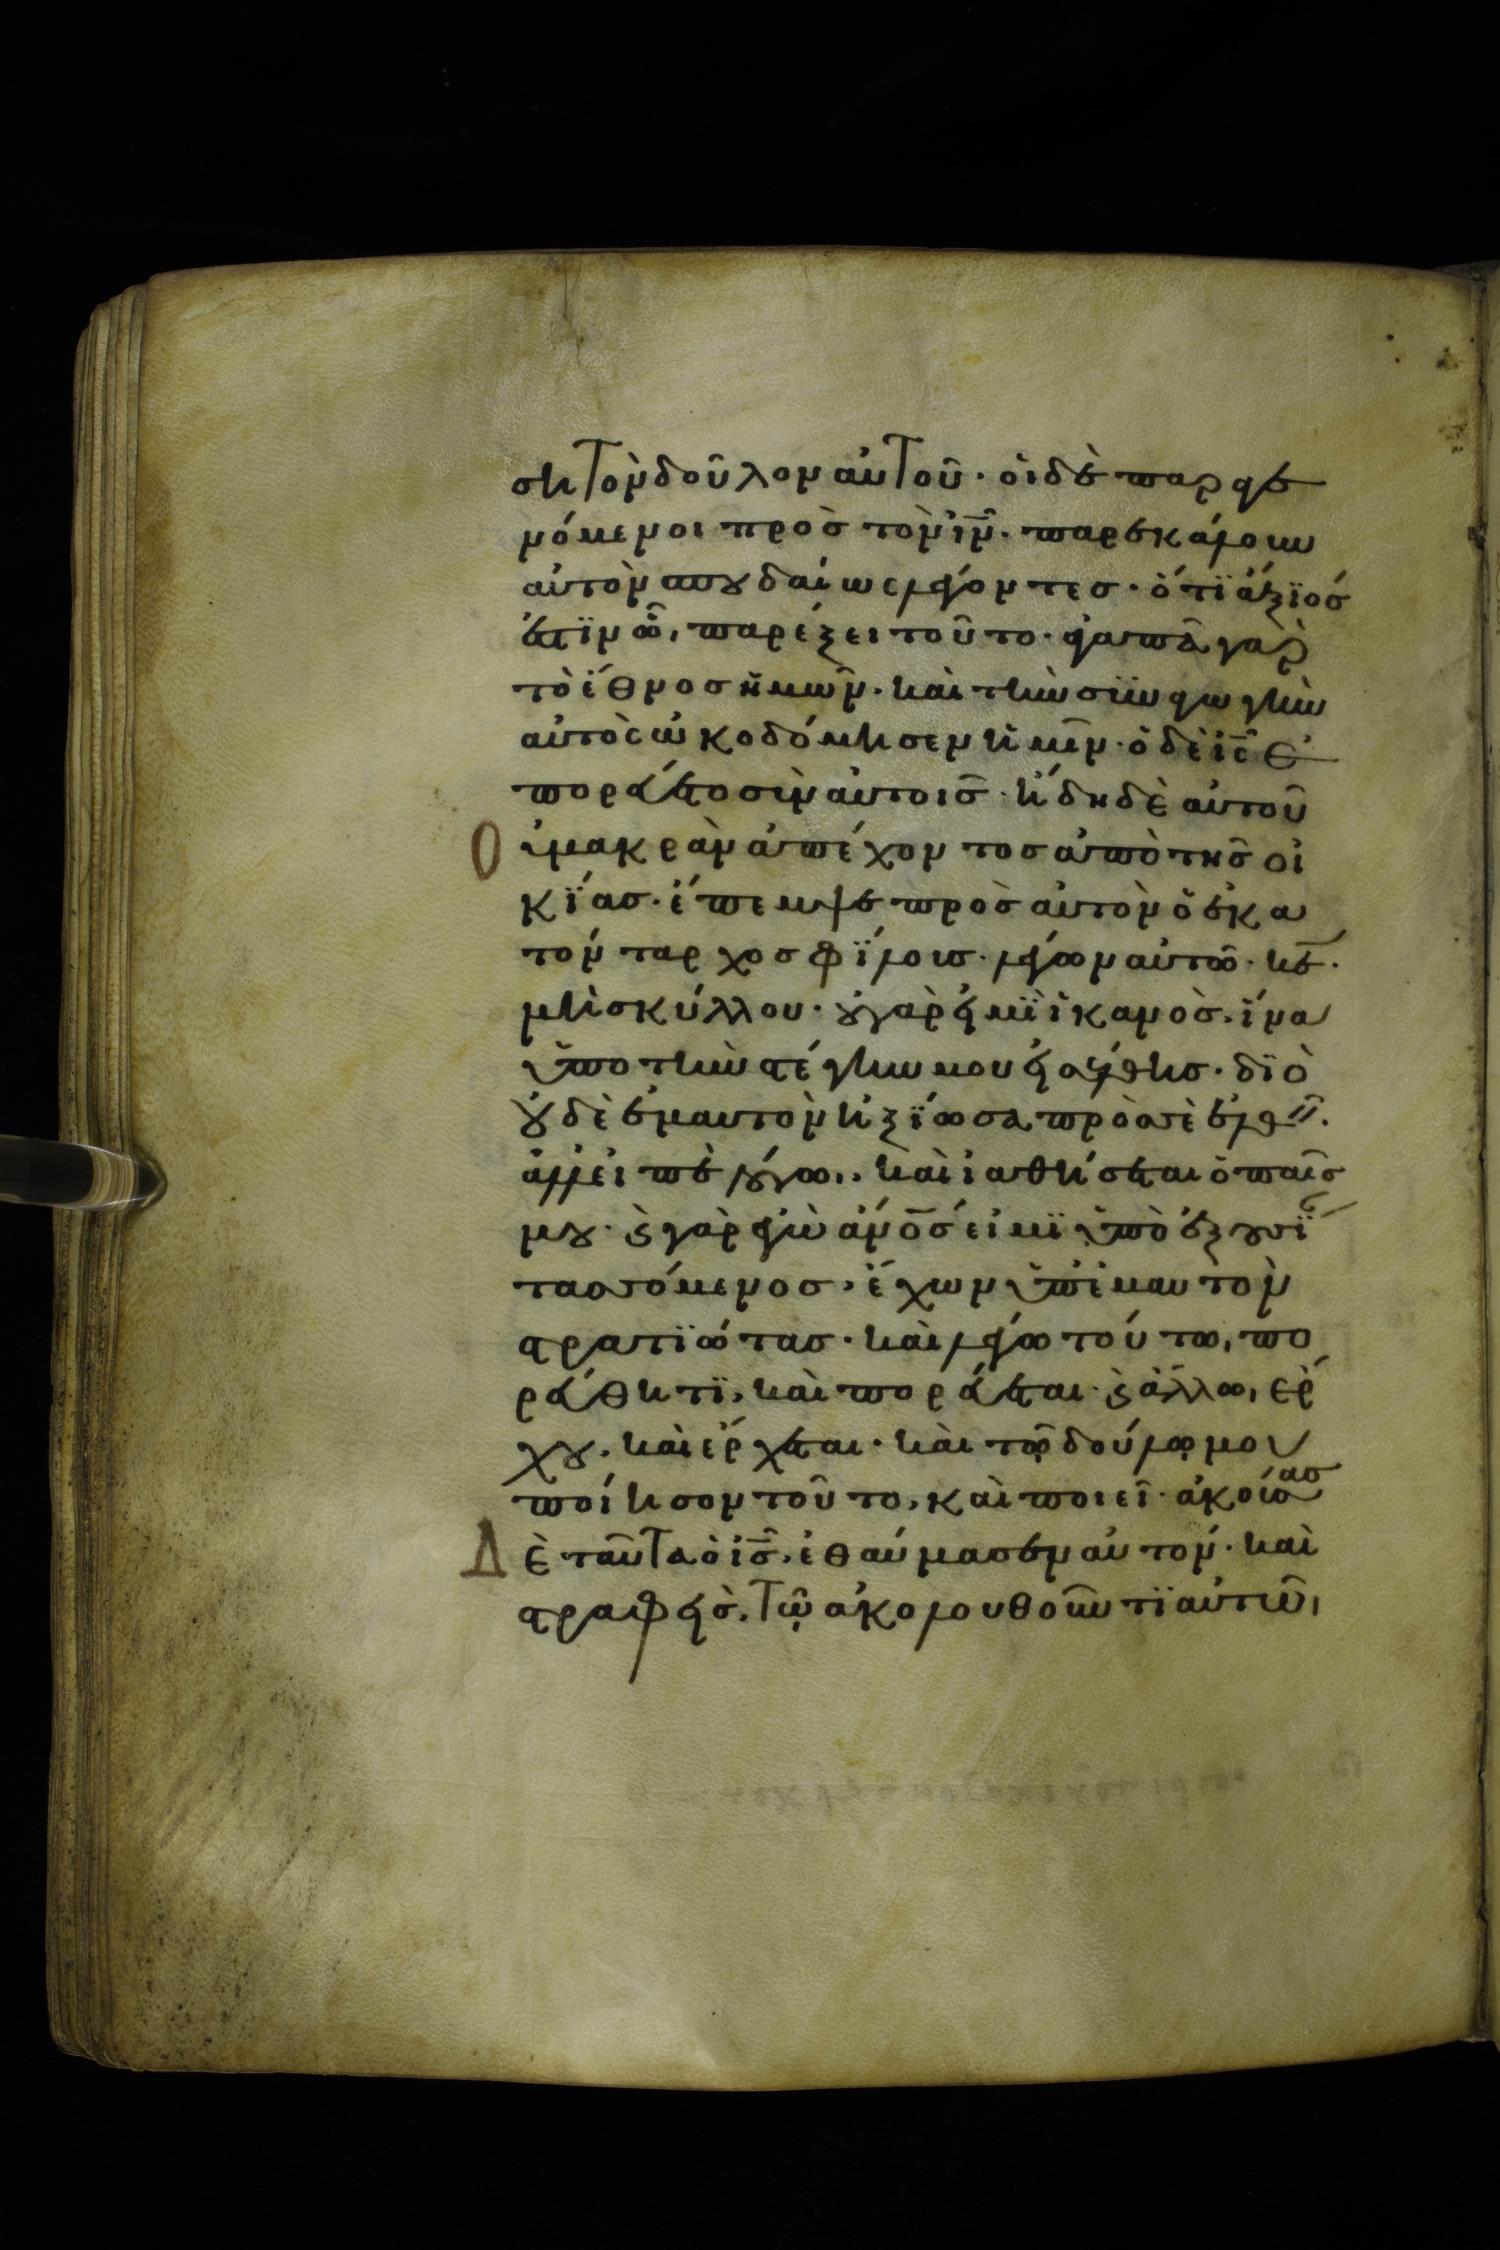 ση τὸν δοῦλον αὐτοῦ· οἱ δὲ παραγε
νόμενοι πρὸς τὸν ιν̅· παρεκάλουν
αὐτὸν σπουδαίως λέγοντες· ὅτι ἄξιός
ἐστιν ὧ, παρέξει τοῦτο· ἀγαπᾶ γὰρ
τὸ ἔθνος ἡμῶν· καὶ τὴν συναγωγὴν
αὐτὸς ὠκοδόμησεν ἡμῖν· ὁ δὲ ις̅ ἐ
πορεύετο σὺν αὐτοῖς· ἤδη δὲ αὐτοῦ
οὐ μακρὰν ἀπέχοντος ἀπὸ τῆς οἰ
κίας· ἔπεμψε πρὸς αὐτὸν ὁ ἑκα
τόνταρχος φίλους· λέγων αὐτῶ· κε̅·
μὴ σκύλλου· οὐ γὰρ εἰμὶ ἱκανὸς· ἵνα
ὑπο τὴν στέγην μου εἰσέλθης· διὸ
οὐδὲ ἐμαυτὸν ἠξίωσα πρὸς σὲ ἐλθεῖν·
ἀλλ' εἰπὲ λόγω,· καὶ ἰαθήσεται ὁ παῖς
μου· καὶ γὰρ ἐγὼ ἄνος̅ εἰμὶ ὑπὸ ἐξουσί
τασσόμενος· ἔχων ὑπ' ἐμαυτὸν
στρατιώτας· καὶ λέγω τούτω, πο
ρεύθητι, καὶ πορεύεται· καὶ ἄλλω, ἔρ
χου, καὶ ἔρχεται· καὶ τῷ δούλῳ μου
ποίησον τοῦτο, καὶ ποιεῖ· ἀκούσας
Δὲ ταῦτα ὁ ις̅· ἐθαύμασεν αὐτόν· καὶ
στραφεὶς· τῷ ἀκολουθοῦντι αὐτῶ,